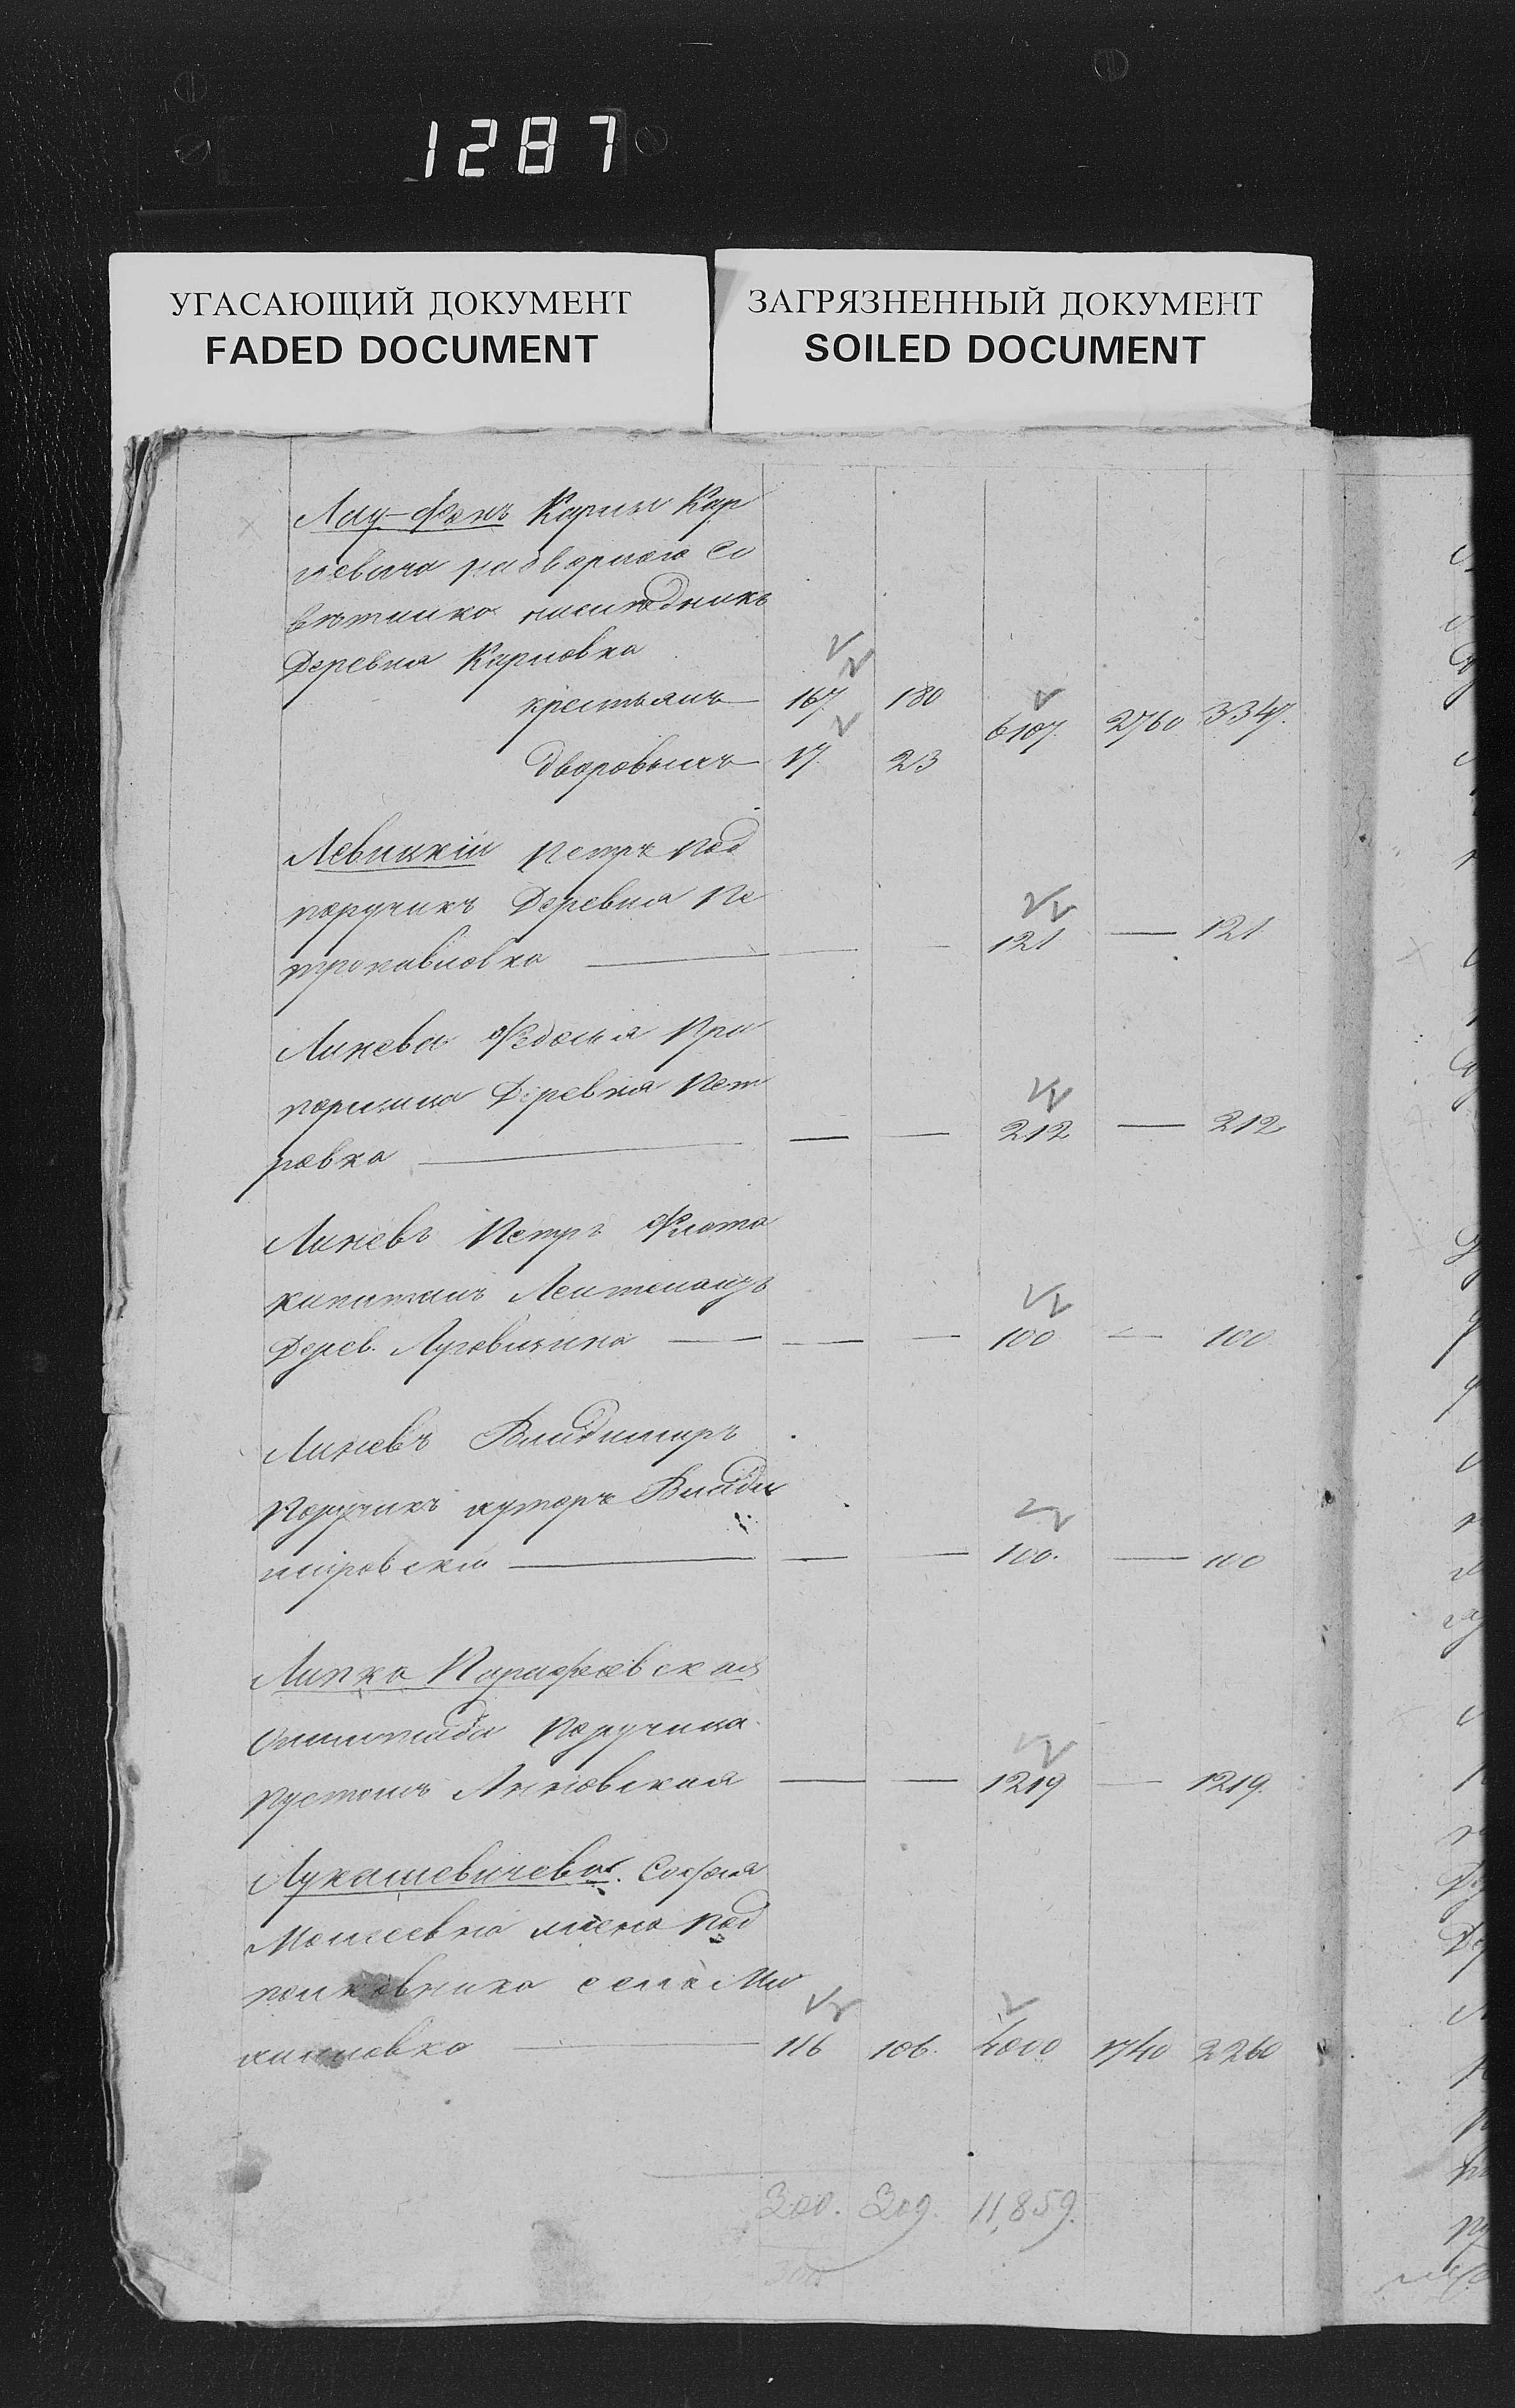 1287
УГАСАЮЩИЙ ДОКУМЕНТ
FADED DOCUMENT
ЗАГРЯЗНЕННЫЙ ДОКУМЕНТ
SOILED DOCUMENT
Лау-фонъ Карлы Кар
ловича надворнаго Со
вѣтника наслѣдники
Деревня Карловка
крестьянъ 167 180 6107. 2760 3347.
дворовыхъ 17. 23
Левицкій Петръ Под
поручикъ Деревня Пе
тропавловка — — — 121 — 121
Линева Федосья
порщица Деревня Пет
ровка — — — 212 — 212
Линевъ Петръ Флота
капитанъ Лейтенантъ
Дерев. — — — 100 — 100
Линевъ Владимиръ
Поручикъ хуторъ Влади
мировскій — — — 100. — 100
Липка Парафіевская
Поручица
пустошь Линовская — — 1219 — 1219.
Лукашевичева. Софья
Моисеевна жена Под
полковника село Ми
хайловка — 116 106. 4000 1740 2260
300. 309. 11,859.